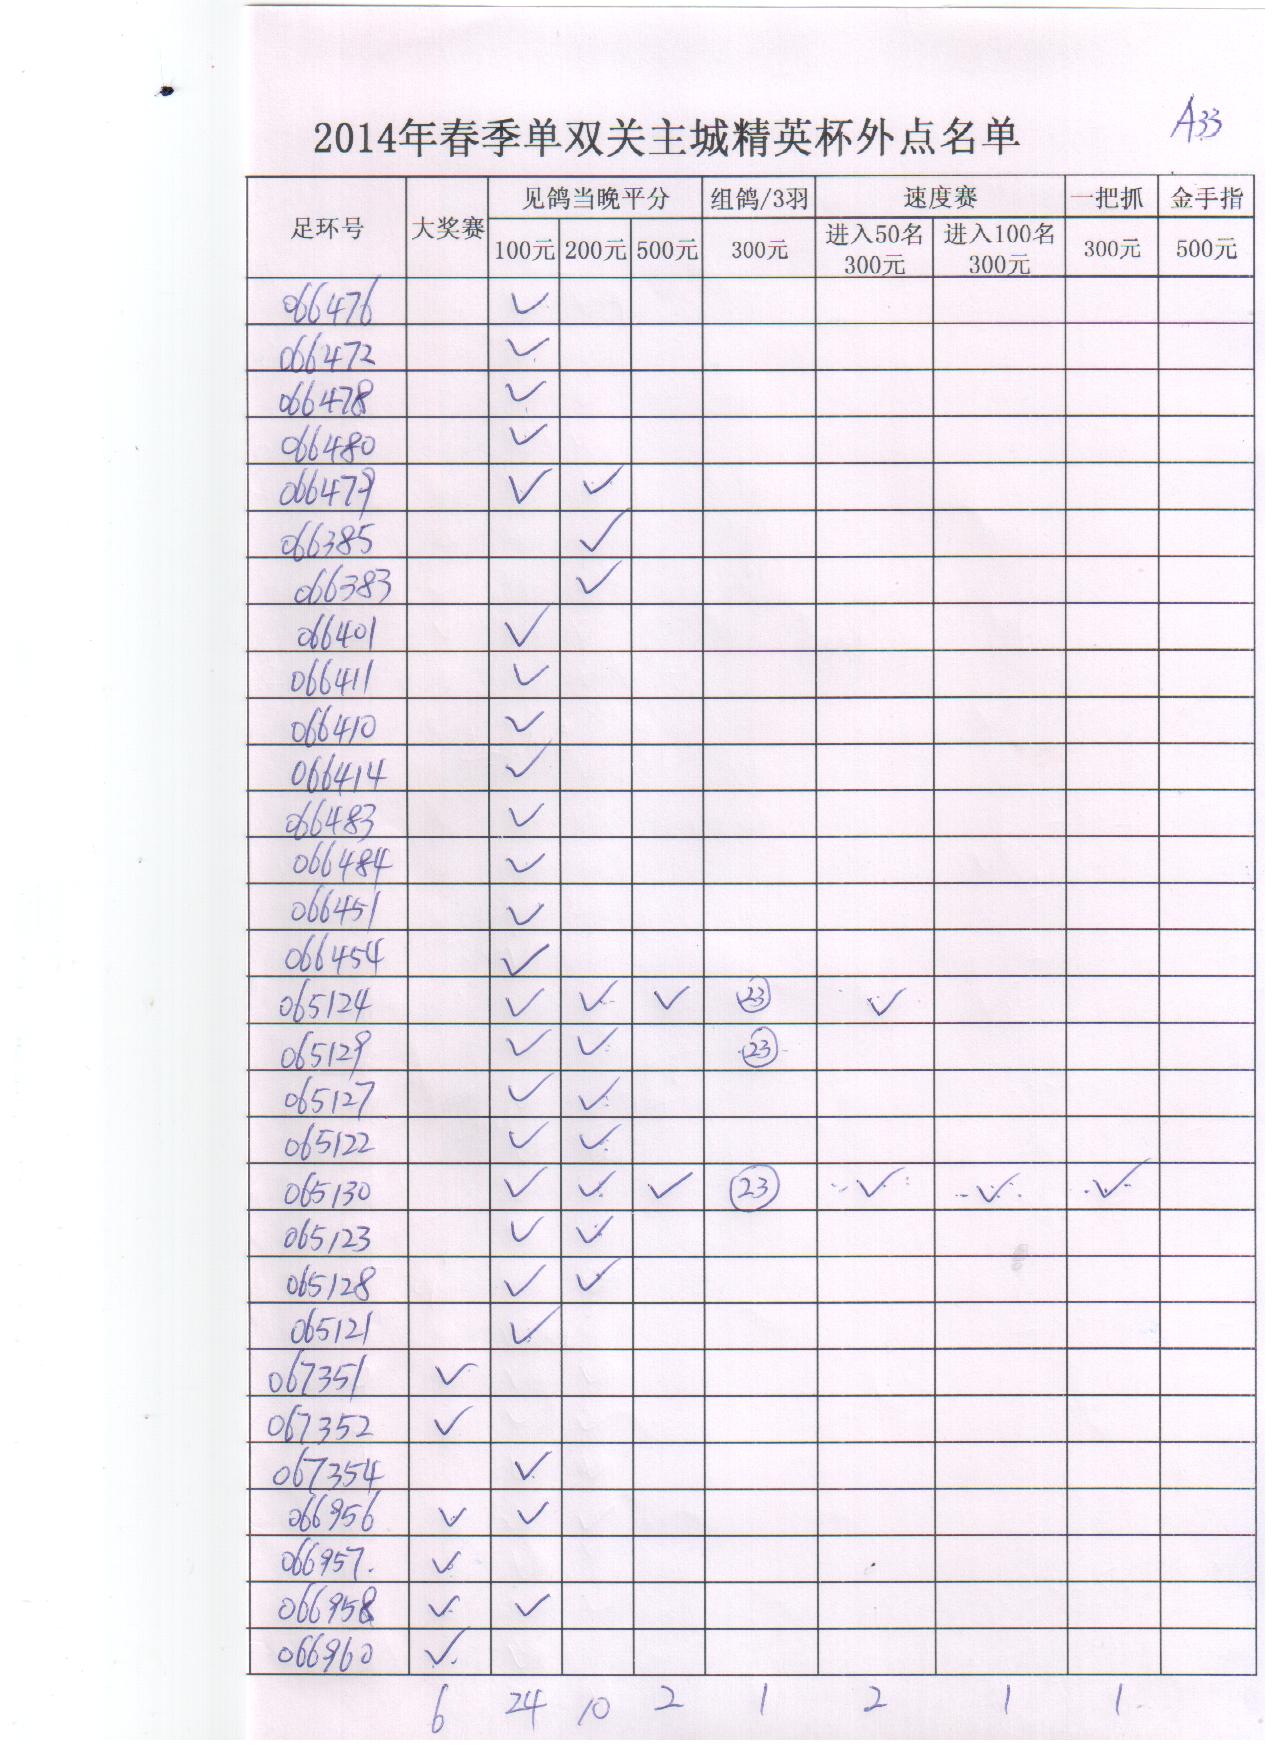 A33
2014年春季单双关主城精英杯外点名单
足环号 大奖赛 见鸽当晚平分 组鸽/3羽 速度赛 一把抓 金手指
100元 200元 500元 300元 进入50名 300元 进入100名 300元 300元 500元
066476 ✓
066472 ✓
066478 ✓
066480 ✓
066479 ✓ ✓
066385 ✓
066383 ✓
066401 ✓
066411 ✓
066410 ✓
066414 ✓
066483 ✓
066484 ✓
066451 ✓
066454 ✓
065124 ✓ ✓ ✓ 23 ✓
065129 ✓ ✓ 23
065127 ✓ ✓
065122 ✓ ✓
065130 ✓ ✓ ✓ 23 ✓ ✓ ✓
065123 ✓ ✓
065128 ✓ ✓
065121 ✓
067351 ✓
067352 ✓
067354 ✓
066956 ✓ ✓
066957. ✓
066958 ✓ ✓
066960 ✓
6 24 10 2 1 2 1 1